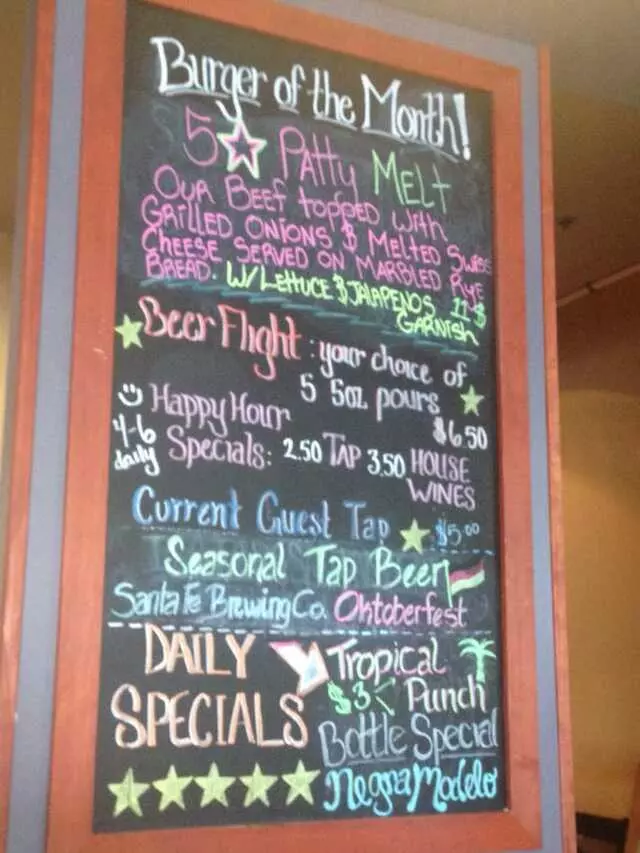 Burger of the Month!
5 Patty Melt
Our Beef topped with
Grilled Onions & Melted Swiss
Cheese Served on Marbled Rye
Bread. W/Lettuce & Jalapenos 11.$
Garnish
Beer Flight: your choice of
5 5oz pours
$6.50
Happy Hour
4-6
daily
Specials: 2.50 Tap 3.50 House
Wines
Current Guest Tap $5.00
Seasonal Tap Beer
Santa Fe Brewing Co. Oktoberfest
Daily
Specials
Tropical
$3 Punch
Bottle Special
Negra Modelo